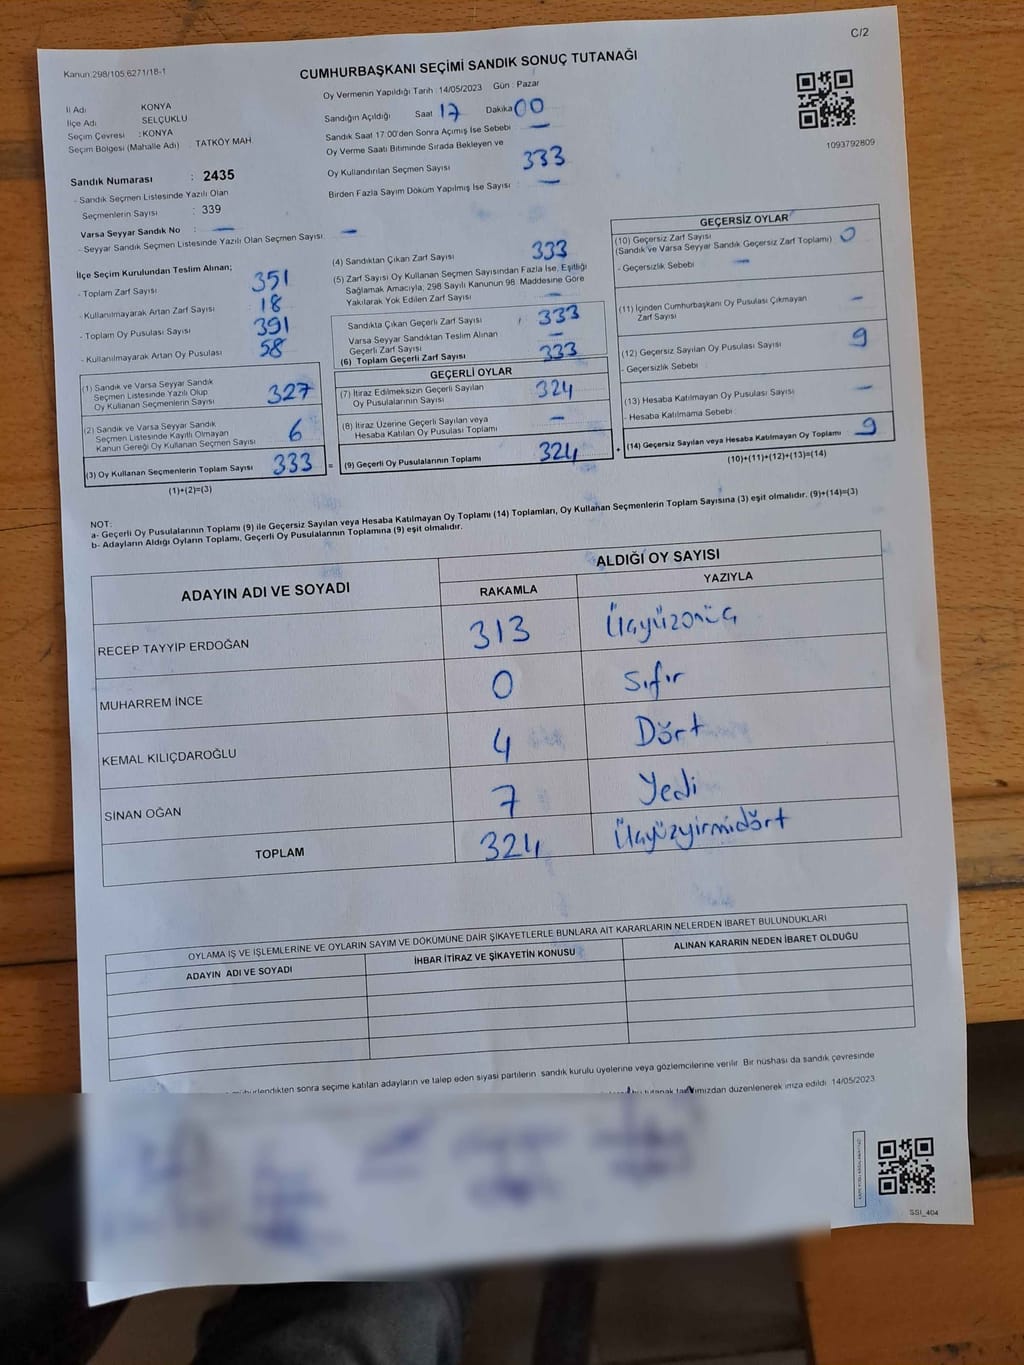 C/2
Kanun:298/105,6271/18-1
CUMHURBAŞKANI SEÇİMİ SANDIK SONUÇ TUTANAĞI
İl Adı KONYA
İlçe Adı SELÇUKLU
Seçim Çevresi : KONYA
Seçim Bölgesi (Mahalle Adı) : TATKÖY MAH.
Sandık Numarası : 2435
- Sandık Seçmen Listesinde Yazılı Olan
Seçmenlerin Sayısı : 339
Varsa Seyyar Sandık No : —
- Seyyar Sandık Seçmen Listesinde Yazılı Olan Seçmen Sayısı: —
Oy Vermenin Yapıldığı Tarih : 14/05/2023 Gün : Pazar
Sandığın Açıldığı Saat 17 Dakika 00
Sandık Saat 17:00'den Sonra Açımış İse Sebebi —
Oy Verme Saati Bitiminde Sırada Bekleyen ve
Oy Kullandırılan Seçmen Sayısı 333
Birden Fazla Sayım Döküm Yapılmış İse Sayısı : —
1093792809
İlçe Seçim Kurulundan Teslim Alınan;
- Toplam Zarf Sayısı 351
- Kullanılmayarak Artan Zarf Sayısı 18
- Toplam Oy Pusulası Sayısı 391
- Kullanılmayarak Artan Oy Pusulası 58
(1) Sandık ve Varsa Seyyar Sandık
Seçmen Listesinde Yazılı Olup
Oy Kullanan Seçmenlerin Sayısı 327
(2) Sandık ve Varsa Seyyar Sandık
Seçmen Listesinde Kayıtlı Olmayan
Kanun Gereği Oy Kullanan Seçmen Sayısı 6
(3) Oy Kullanan Seçmenlerin Toplam Sayısı 333 =
(1)+(2)=(3)
(4) Sandıktan Çıkan Zarf Sayısı 333
(5) Zarf Sayısı Oy Kullanan Seçmen Sayısından Fazla İse, Eşitliği
Sağlamak Amacıyla, 298 Sayılı Kanunun 98. Maddesine Göre
Yakılarak Yok Edilen Zarf Sayısı —
Sandıkta Çıkan Geçerli Zarf Sayısı : 333
Varsa Seyyar Sandıktan Teslim Alınan
Geçerli Zarf Sayısı —
(6) Toplam Geçerli Zarf Sayısı 333
GEÇERLİ OYLAR
(7) İtiraz Edilmeksizin Geçerli Sayılan
Oy Pusulalarının Sayısı 324
(8) İtiraz Üzerine Geçerli Sayılan veya
Hesaba Katılan Oy Pusulası Toplamı —
(9) Geçerli Oy Pusulalarının Toplamı 324 +
GEÇERSİZ OYLAR
(10) Geçersiz Zarf Sayısı
(Sandık ve Varsa Seyyar Sandık Geçersiz Zarf Toplamı) 0
- Geçersizlik Sebebi —
(11) İçinden Cumhurbaşkanı Oy Pusulası Çıkmayan
Zarf Sayısı —
(12) Geçersiz Sayılan Oy Pusulası Sayısı 9
- Geçersizlik Sebebi
(13) Hesaba Katılmayan Oy Pusulası Sayısı —
- Hesaba Katılmama Sebebi :
(14) Geçersiz Sayılan veya Hesaba Katılmayan Oy Toplamı 9
(10)+(11)+(12)+(13)=(14)
NOT:
a- Geçerli Oy Pusulalarının Toplamı (9) ile Geçersiz Sayılan veya Hesaba Katılmayan Oy Toplamı (14) Toplamları, Oy Kullanan Seçmenlerin Toplam Sayısına (3) eşit olmalıdır. (9)+(14)=(3)
b- Adayların Aldığı Oyların Toplamı, Geçerli Oy Pusulalarının Toplamına (9) eşit olmalıdır.
ADAYIN ADI VE SOYADI ALDIĞI OY SAYISI
RAKAMLA YAZIYLA
RECEP TAYYIP ERDOĞAN 313 Üçyüzonüç
MUHARREM İNCE 0 Sıfır
KEMAL KILIÇDAROĞLU 4 Dört
SİNAN OĞAN 7 Yedi
TOPLAM 324 Üçyüzyirmidört
OYLAMA İŞ VE İŞLEMLERİNE VE OYLARIN SAYIM VE DÖKÜMÜNE DAİR ŞİKAYETLERLE BUNLARA AİT KARARLARIN NELERDEN İBARET BULUNDUKLARI
ADAYIN ADI VE SOYADI İHBAR İTİRAZ VE ŞİKAYETİN KONUSU ALINAN KARARIN NEDEN İBARET OLDUĞU
sonra seçime katılan adayların ve talep eden siyasi partilerin sandık kurulu üyelerine veya gözlemcilerine verilir. Bir nüshası da sandık çevresinde
bu tutanak tarafımızdan düzenlenerek imza edildi. 14/05/2023
SSI_404